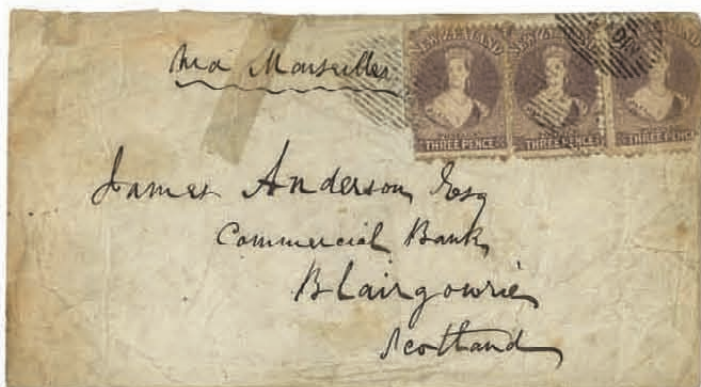 via Marseilles
NEW ZEALAND
THREE PENCE
NEW ZEALAND
THREE PENCE
NEW ZEALAND
THREE PENCE
James Anderson Esq
Commercial Bank
Blairgowrie
Scotland